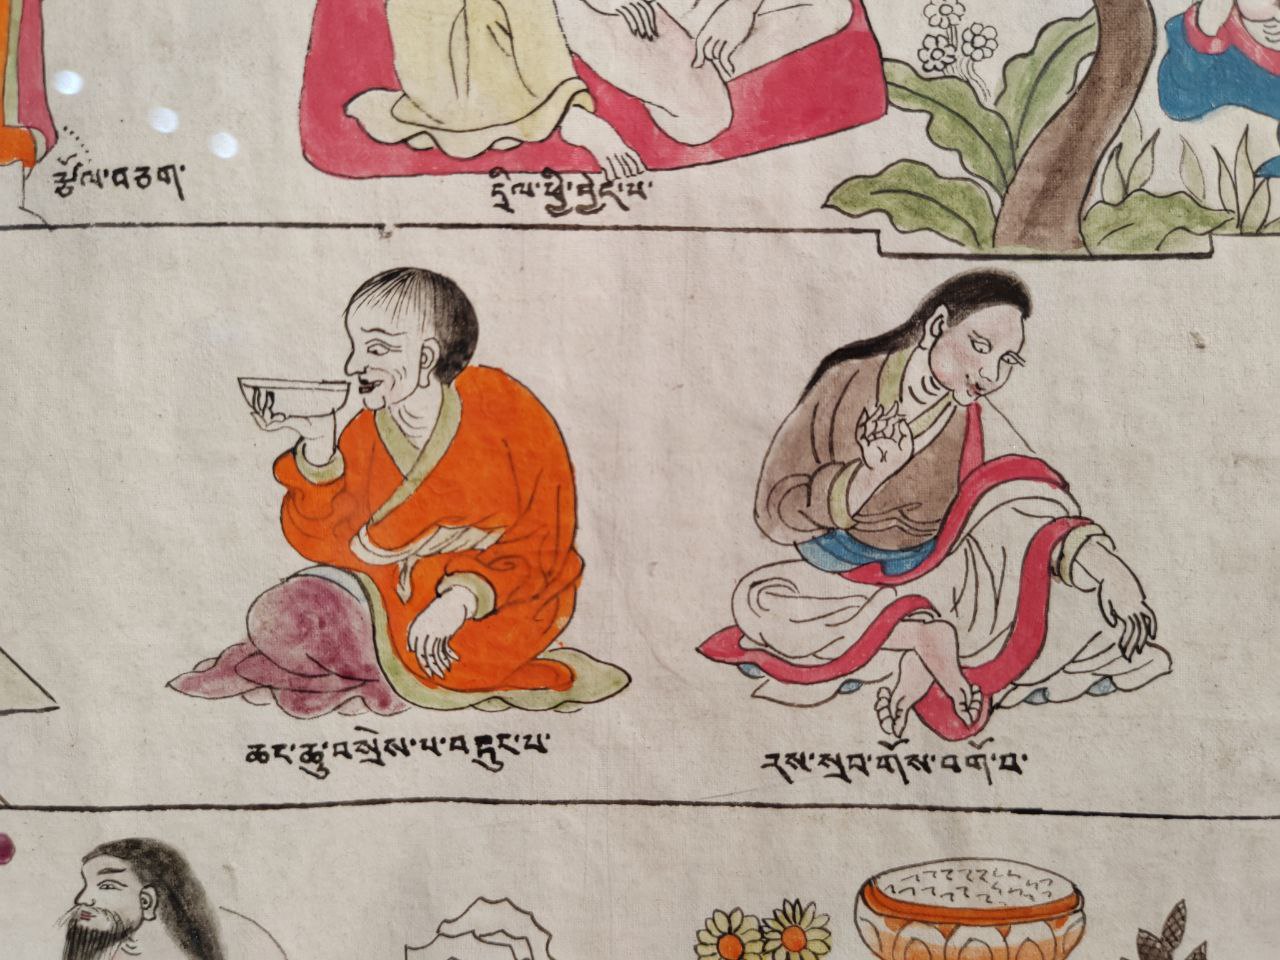 རྩོལ་བཅག་
དྲིལ་ཕྱི་བྱེད་པ་
ཆང་ཆུ་བསྲེས་པ་བཏུང་པ་
རས་སྲབ་གོས་བགོ་བ་